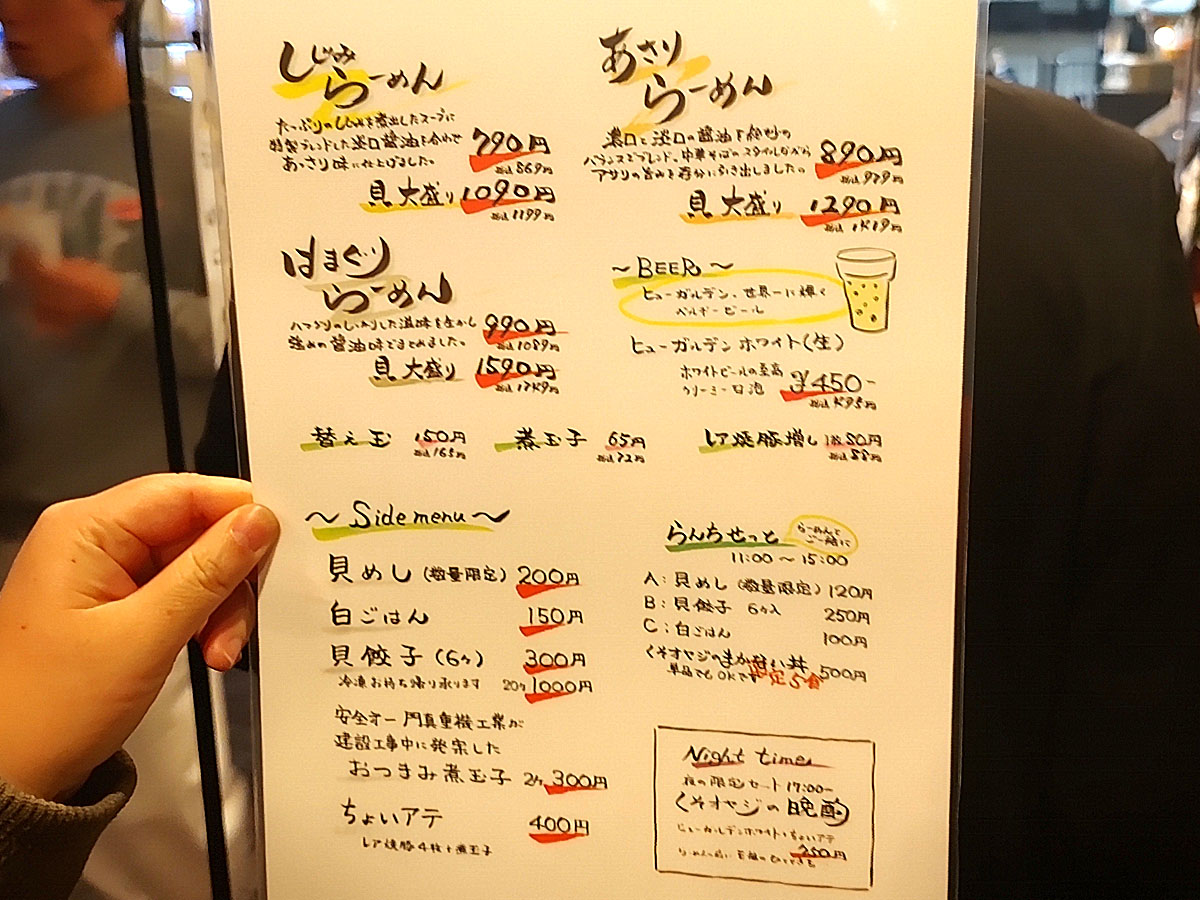 しじみ
らーめん
たっぷりのしじみを煮出したスープに
特製ブレンドした淡口醤油を合わせ
あっさり味に仕上げました。
790円
税込869円
貝 大盛り 1090円
税込1199円
あさり
らーめん
濃口と淡口の醤油を絶妙の
バランスでブレンド。中華そばのスタイルながら
アサリの旨みを存分に引き出しました。
890円
税込979円
貝 大盛り 1290円
税込1419円
はまぐり
らーめん
ハマグリのしっかりした滋味を生かし
強めの醤油味でまとめました。
990円
税込1089円
貝 大盛り 1590円
税込1749円
～BEER～
ヒューガルデン、世界一に輝く
ベルギービール
ヒューガルデン ホワイト(生)
ホワイトビールの至高
クリーミーな泡
¥450-
税込495円
替え玉 150円
税込165円
煮玉子 65円
税込72円
レア焼豚増し 1枚80円
税込88円
～Side menu～
貝めし(数量限定) 200円
白ごはん 150円
貝餃子(6ヶ) 300円
冷凍お持ち帰り承ります 20ヶ1000円
安全オー 門真重機工業が
建設工事中に発案した
おつまみ煮玉子 2ヶ300円
ちょいアテ 400円
レア焼豚4枚+煮玉子
らんちせっと
らーめんと
ご一緒に
11:00～15:00
A:貝めし(数量限定) 120円
B:貝餃子 6ヶ入 250円
C:白ごはん 100円
くそオヤジのまかない丼 500円
単品でもOKです 限定5食
Night time
夜の限定セット 17:00-
くそオヤジの晩酌
ヒューガルデンホワイト+ちょいアテ
750円